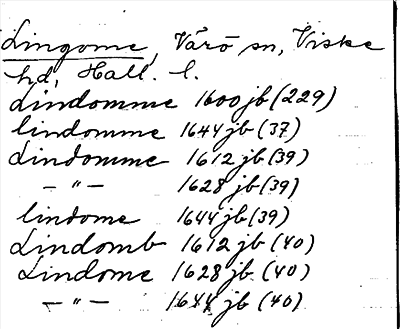 Lingome, Värö sn, Viske
hd, Hall. l.
Lindomme 1600 jb (229)
lindomme 1644 jb (37)
Lindomme 1612 jb (39)
— " — 1628 jb (39)
lindome 1644 jb (39)
Lindomb 1612 jb (40)
Lindome 1628 jb (40)
— " — 1644 jb (40)